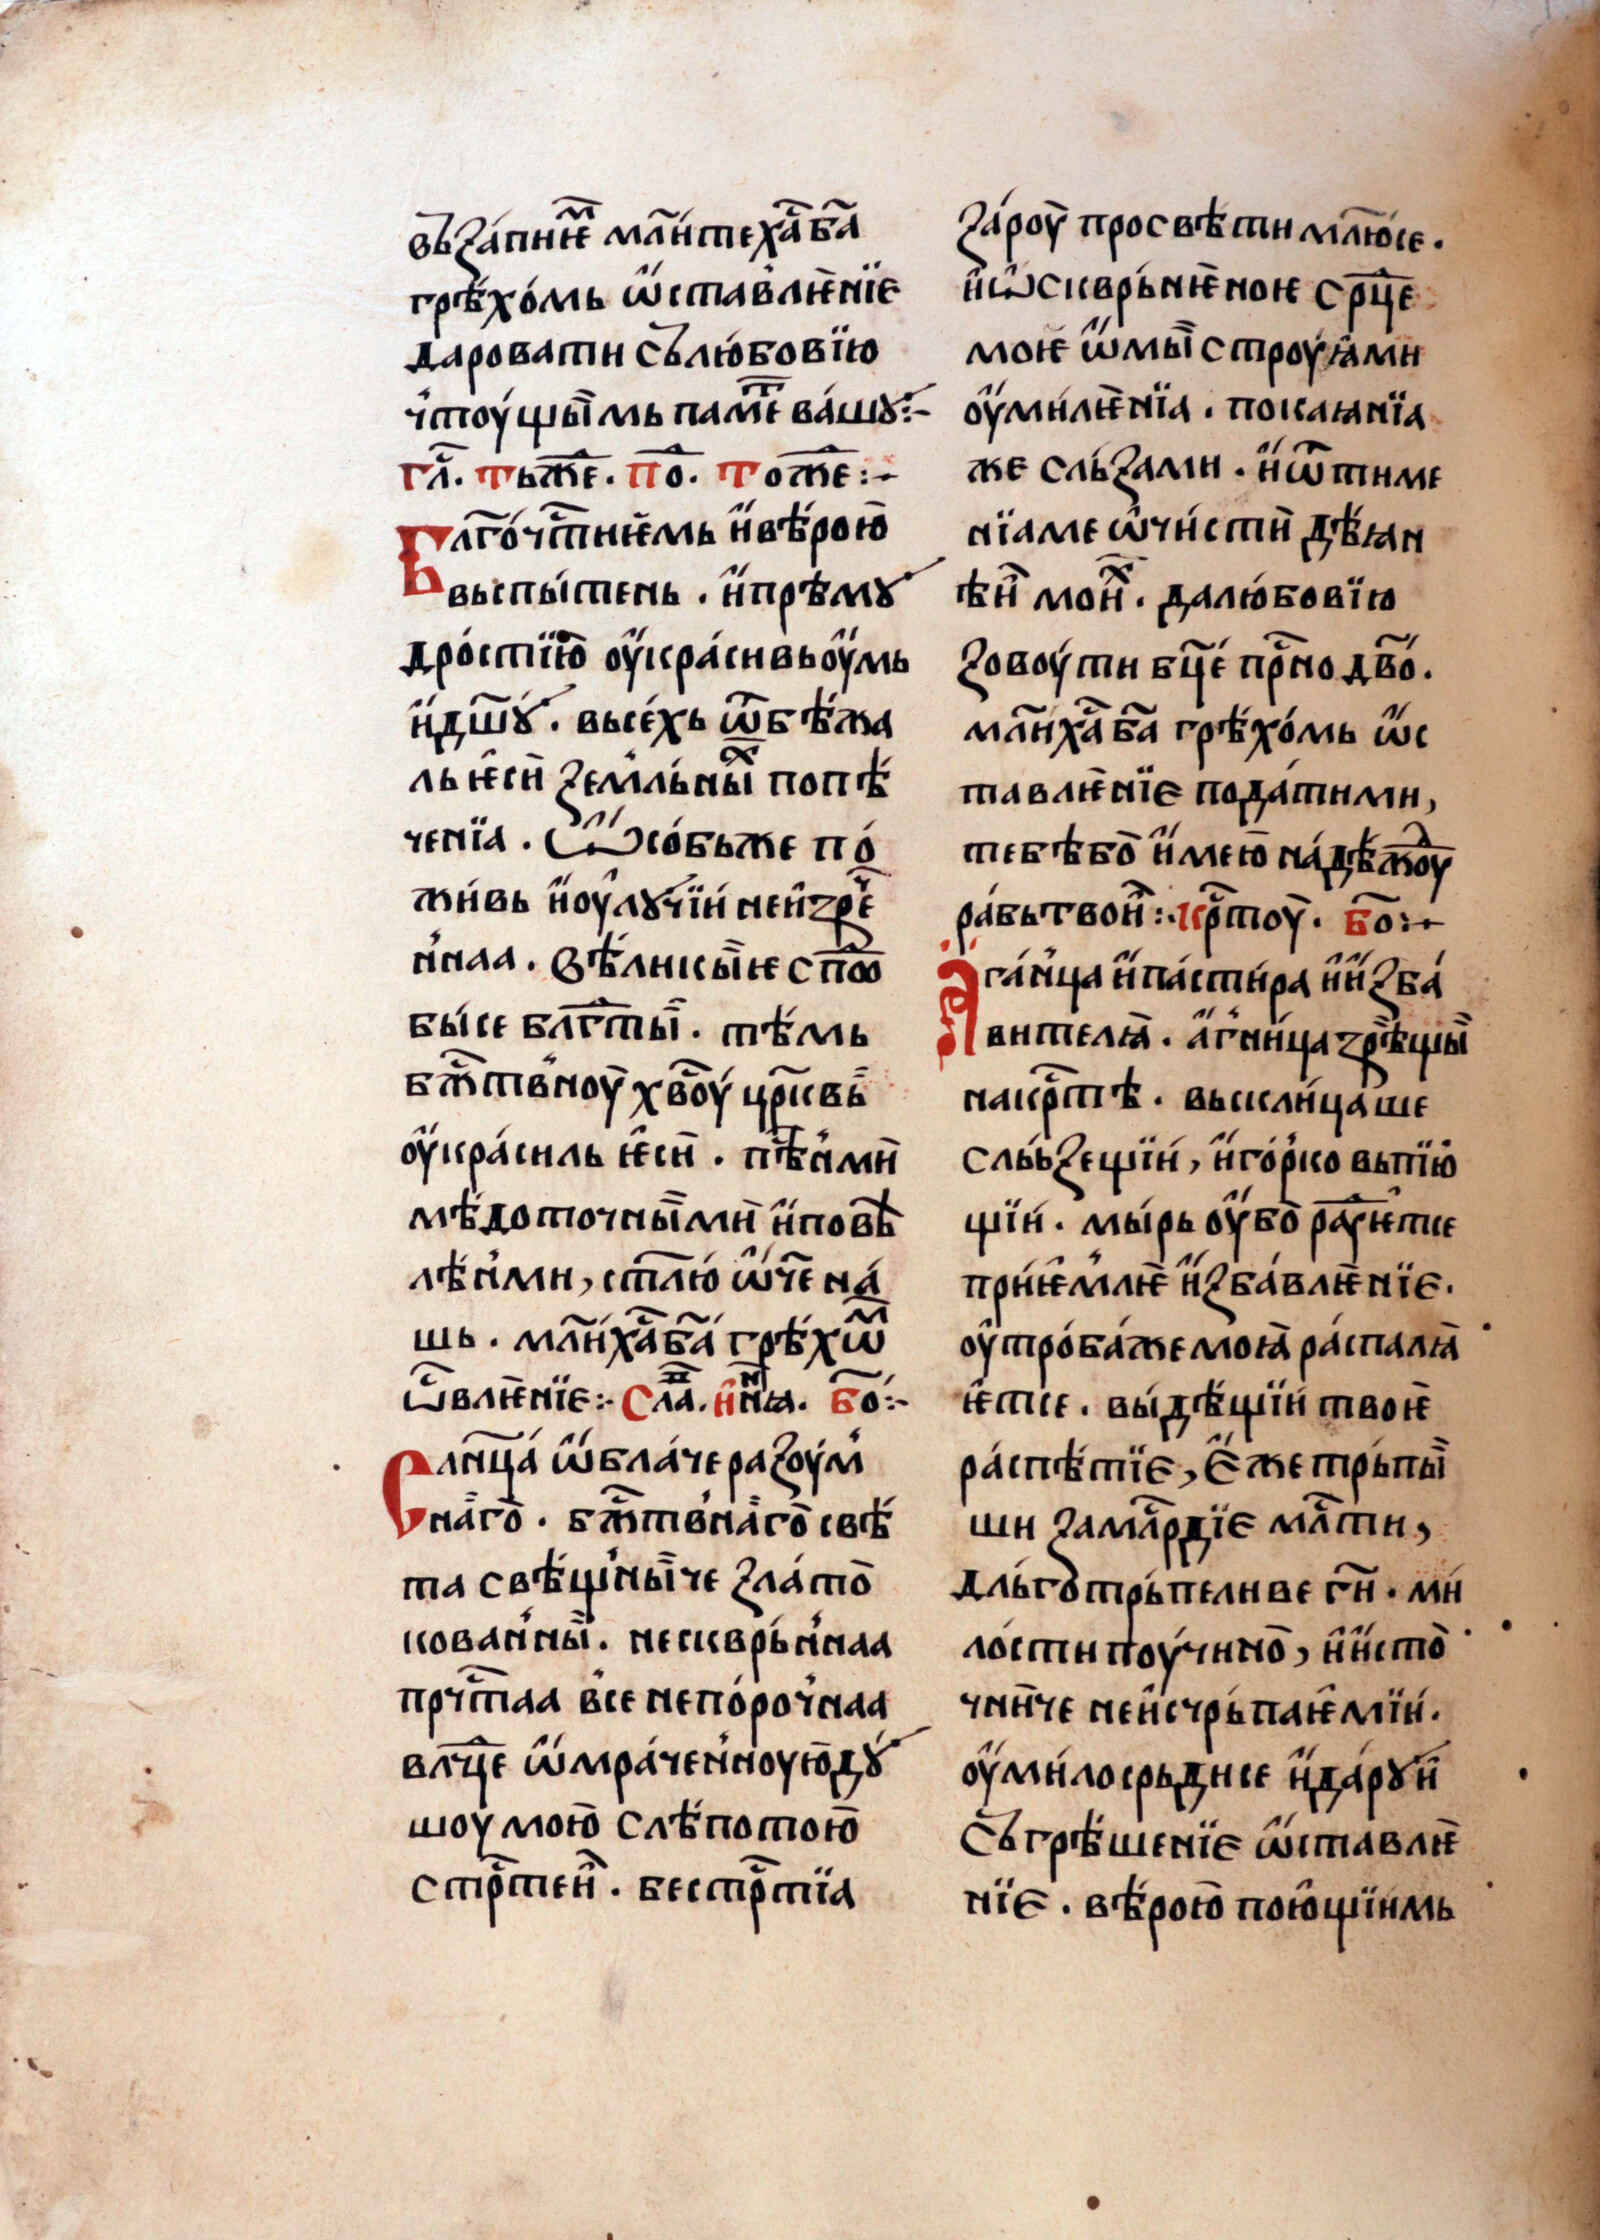 въꙁа́пнїе҆ⷨ мл҃и́те ха҃ ба҃
грѣ́хо́мь ѡ҆́ставлѥ҆́нїе
даровати сълю́бовїю
ч҆тоу́щыи҆мь паме҆ⷮ ва́шꙋ :~
гл҃. тъⷤже. пⷣо. тоⷤже :~
Бл҃го́чⷭ҇тиѥ҆мь и҆́вѣ́рою҆
въспы́тень . и҆́прѣ́мꙋ
дро́стїю҆ оу҆́кра́сивь оу҆́мь
и҆́дш҃ꙋ . высе́хь ѿбѣ́жа
ль ѥ҆сѝ ꙁемⷧ҇льны́ⷯ попѣ́
ченїа . Ѡ҆́со́бьже по́
жи́вь и҆́оу҆лꙋчїи неи҆ꙁре́ⷱ
н҆наа . Вѣ́ликы́ѥ сп҃ѡⷣ
бы́се бл҃гⷣты̏ . тѣ́мь
бжⷭ҇твн҆оу̏ хв҃оу́ цр҃квь̏
оу҆́кра́силь ѥ҆сѝ . пѣ́ⷭн҆мѝ
мѣ́доточны̏мѝ и҆́повѣ
лѣ́н҆ми , ст҃лю́ ѡ҆́ч҃е на́
шь . мл҃и́ ха҃ ба҃ грѣ́хѡⷨ
ѿвлѥ҆нїе :~ слаⷡ҇. и҆ нн҃ꙗ. бо҃ :~
Слн҃ца́ ѡ҆́бла́че раꙁоу́м҆
на̏го҆ . бжⷭ҇тв҆на̏го҆ свѣ́
та свѣ́щн҆ны̏че ꙁла́то҆
кован҆ны̏ . нескврь́н҆наа
прчⷭ҇таа в҆се непо́роч҆наа
влⷣце ѡ҆́мра́чен҆ноую҆ дꙋ
шоу мою҆ слѣ́потою҆
стрⷭ҇теи҆ . бестрⷭ҇тїа
ꙁа́роу̏ просвѣ́ти млⷧ҇ю́се .
и҆́ѡ҆скврь́нѥ҆ноѥ срⷣце
моѥ҆ ѡ҆́мы̏ строу́ꙗми
оу҆́ми́лѥ҆нїа . покаꙗнїа
же сль́ꙁами . и҆́ѿтиме
нїаме ѡ҆чи́стѝ дѣ́ꙗн
ѣ́и҆ мои҆ⷯ . далю́бовїю
ꙁовоу́ти бц҃е́ прⷭ҇но дв҃о .
мл҃и́ ха҃ ба҃ грѣ́хо́мь ѡ҆́с
тавлѥ҆нїе пода́тими ,
тебѣ́бо҆ и҆́мею҆ на́дѣⷤоу
ра́бь твои҆ :~ крⷭ҇тоу̏ . бо҃ :~
Ꙗ҆га́н҆ца и҆́па́сти́ра и҆́и҆ꙁба́
вителꙗ̀ . а҆́г҆ни́ца ꙁре҆́щы̏
накрⷭ҇тѣ́ . въскли́цаше
сльь́ꙁещїи́ , и҆́го́р҆ко въпїю҆
щїи́ . мы́рь оу҆́бо̀ раⷣуѥ҆тсе
при́ѥ҆м҆лѥ҆ и҆́ꙁба́влѥ҆нїе .
оу҆тро́ба́же моꙗ̀ ра́спалꙗ
ѥ҆тсе . вы́дѣ́щїи твоѥ
ра́спѣ́тїе , є҆́же трь́пы̏
ши ꙁамлⷭ҇рдїе млⷭ҇ти ,
дль́готрь́пеливе гⷭ҇и . ми́
ло́сти поу́чино҆ , и҆́и҆сто҆
чни҆че неи҆счрь́паѥ҆мїи́ .
оу҆́ми́лосрьднсе и҆́да́рꙋи҆
Съгрѣ́шенїе ѡ҆́ставлѥ҆
нїе . вѣ́рою҆ пою҆щїимь